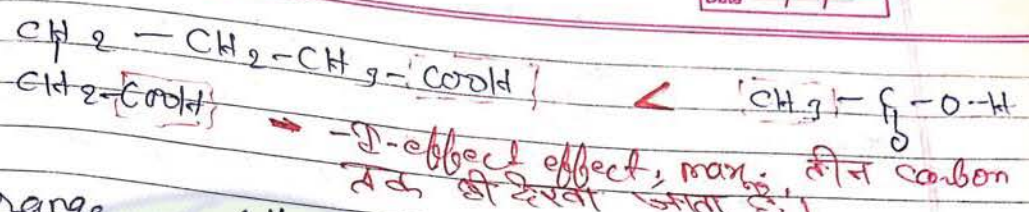 CH2 - CH2 - CH3 - COOH < CH3 - C - O - H
CH2 - COOH O
→ -I-effect effect, max. तीन carbon
तक ही देखा जाता है।